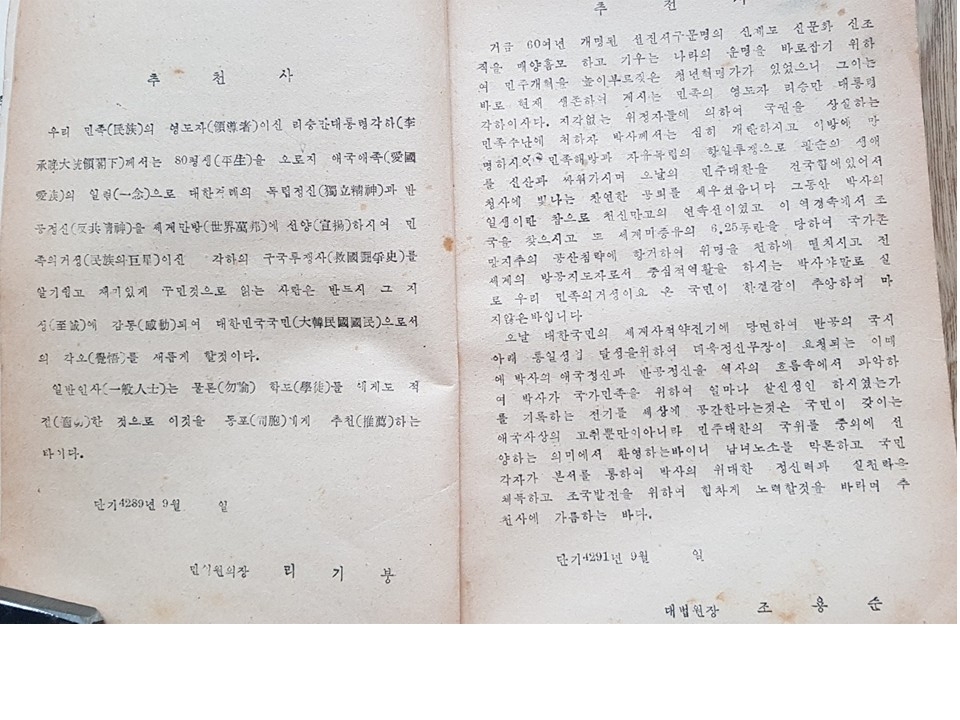 추 천 사
우리 민족(民族)의 영도자(領導者)이신 리승만대통령각하(李
承晩大統領閣下)께서는 80평생(平生)을 오로지 애국애족(愛國
愛族)의 일렴(一念)으로 대한겨레의 독립정신(獨立精神)과 반
공정신(反共精神)을 세계만방(世界萬邦)에 선양(宣揚)하시여 민
족의거성(民族의巨星)이신 각하의 구국투쟁사(救國鬪爭史)를
알기쉽고 재미있게 꾸민것으로 읽는 사람은 반드시 그 지
성(至誠)에 감동(感動)되여 대한민국국민(大韓民國國民)으로서
의 각오(覺悟)를 새롭게 할것이다.
일반인사(一般人士)는 물론(勿論) 학도(學徒)들 에게도 적
전 한 것으로 이것을 동포 에게 추천(推薦)하는
바이다.
단기4289년 9월 일
민의원의장 리 기 붕
추 천 사
거금 60여년 개명된 선진서구문명의 신제도 신문화 신조
직을 배양흠모 하고 기우는 나라의 운명을 바로잡기 위하
여 민주개혁을 높이부르짖은 청년혁명가가 있었으니 그이는
바로 현재 생존하여 계시는 민족의 영도자 리승만 대통령
각하이사다. 지각없는 위정자들에 의하여 국권을 상실하는
민족수난에 처하자 박사께서는 심히 개탄하시고 이방에 망
명하시여 민족해방과 자유독립의 항일투쟁으로 필순의 생애
를 신산과 싸워가시며 오늘의 민주대한을 건국함에있어서
청사에 빛나는 찬연한 공훼를 세우셨읍니다 그동안 박사의
일생이란 참으로 천신만고의 연속선이였고 이 역경속에서 조
국을 찾으시고 또 세계미증유의 6.25동란을 당하여 국가존
망지추의 공산침략에 항거하여 위명을 천하에 떨치시고 전
세계의 반공지도자로서 중심적역활을 하시는 박사야말로 실
로 우리 민족의거성이요 온 국민이 한결같이 추앙하여 마
지않은바입니다
오날 대한국민의 세계사적약진기에 당면하여 반공의 국시
아래 통일성업 달성을위하여 대욱정신무장이 요청되는 이때
에 박사의 애국정신과 반공정신을 역사의 흐름속에서 파악하
여 박사가 국가민족을 위하여 얼마나 살신성인 하시였는가
를 기록하는 전기를 세상에 공간한다는것은 국민이 갖이는
애국사상의 고취뿐만이아니라 민주대한의 국위를 중외에 선
양하는 의미에서 환영하는바이니 남녀노소를 막론하고 국민
각자가 본서를 통하여 박사의 위대한 정신력과 실천력을
체득하고 조국발전을 위하여 힘차게 노력할것을 바라며 추
천사에 가름하는 바다.
단기4291년 9월 일
대법원장 조 용 순